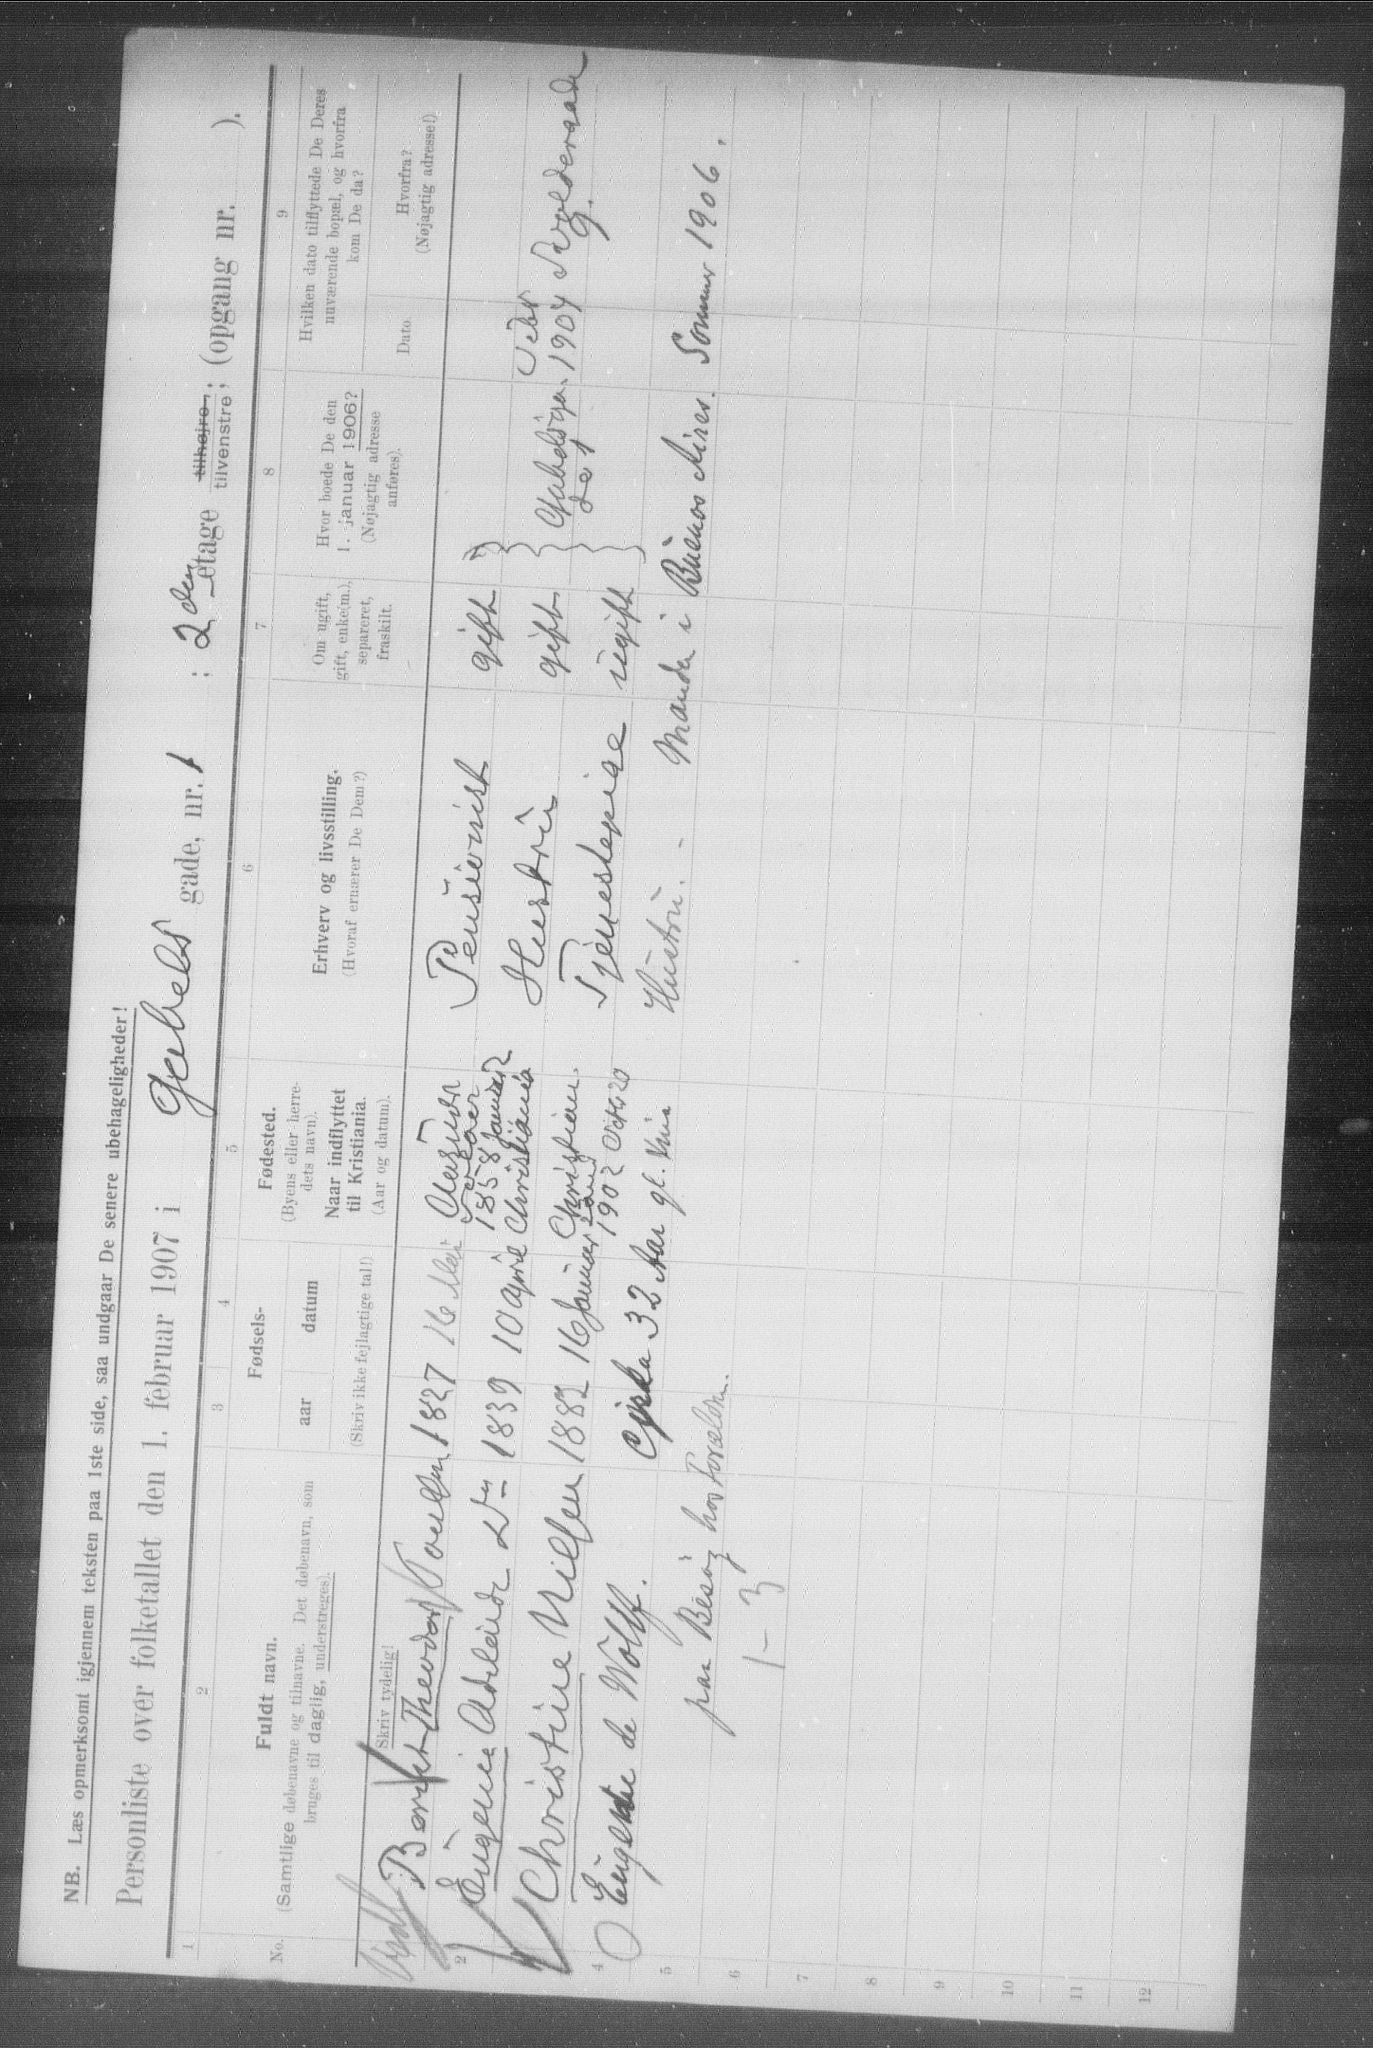 NB. Læs opmerksomt igjennem teksten paa 1ste side, saa undgaar De senere ubehageligheder!
Personliste over folketallet den 1. februar 1907 i Gabels gade, nr. 1 ; 2den etage tilhøjre, tilvenstre; (opgang nr. ).
1 2 3 4 5 6 7 8 9
No.
Fuldt navn.
(Samtlige døbenavne og tilnavne. Det døbenavn, som
bruges til daglig, understreges).
Skriv tydelig!
Fødsels-
aar
datum
(Skriv ikke fejlagtige tal!)
Fødested.
(Byens eller herre-
dets navn).
Naar indflyttet
til Kristiania.
(Aar og datum).
Erhverv og livsstilling.
(Hvoraf ernærer De Dem?)
Om ugift,
gift, enke(m.),
separeret,
fraskilt.
Hvor boede De den
1. januar 1906?
(Nøjagtig adresse
anføres).
Hvilken dato tilflyttede De Deres
nuværende bopæl, og hvorfra
kom De da?
Dato.
Hvorfra?
(Nøjagtig adresse!)
Theodor 1827 16 Mai
1858 Januar
Pensionist gift
2 Eugenie 1839 10 April Christiania Hustru gift
Gabelsgen. 1
1904
Christine 1882 16 Januar Christian
sand 1902 Oktb 20
Tjenestepige ugift
4 Eugenie de Wolff. Cirka 32 Aar gl. Hustru. - Manden i Buenos Aires. Sommer 1906.
5 paa Besøg hos Forældrn.
1 - 3
6
7
8
9
10
11
12